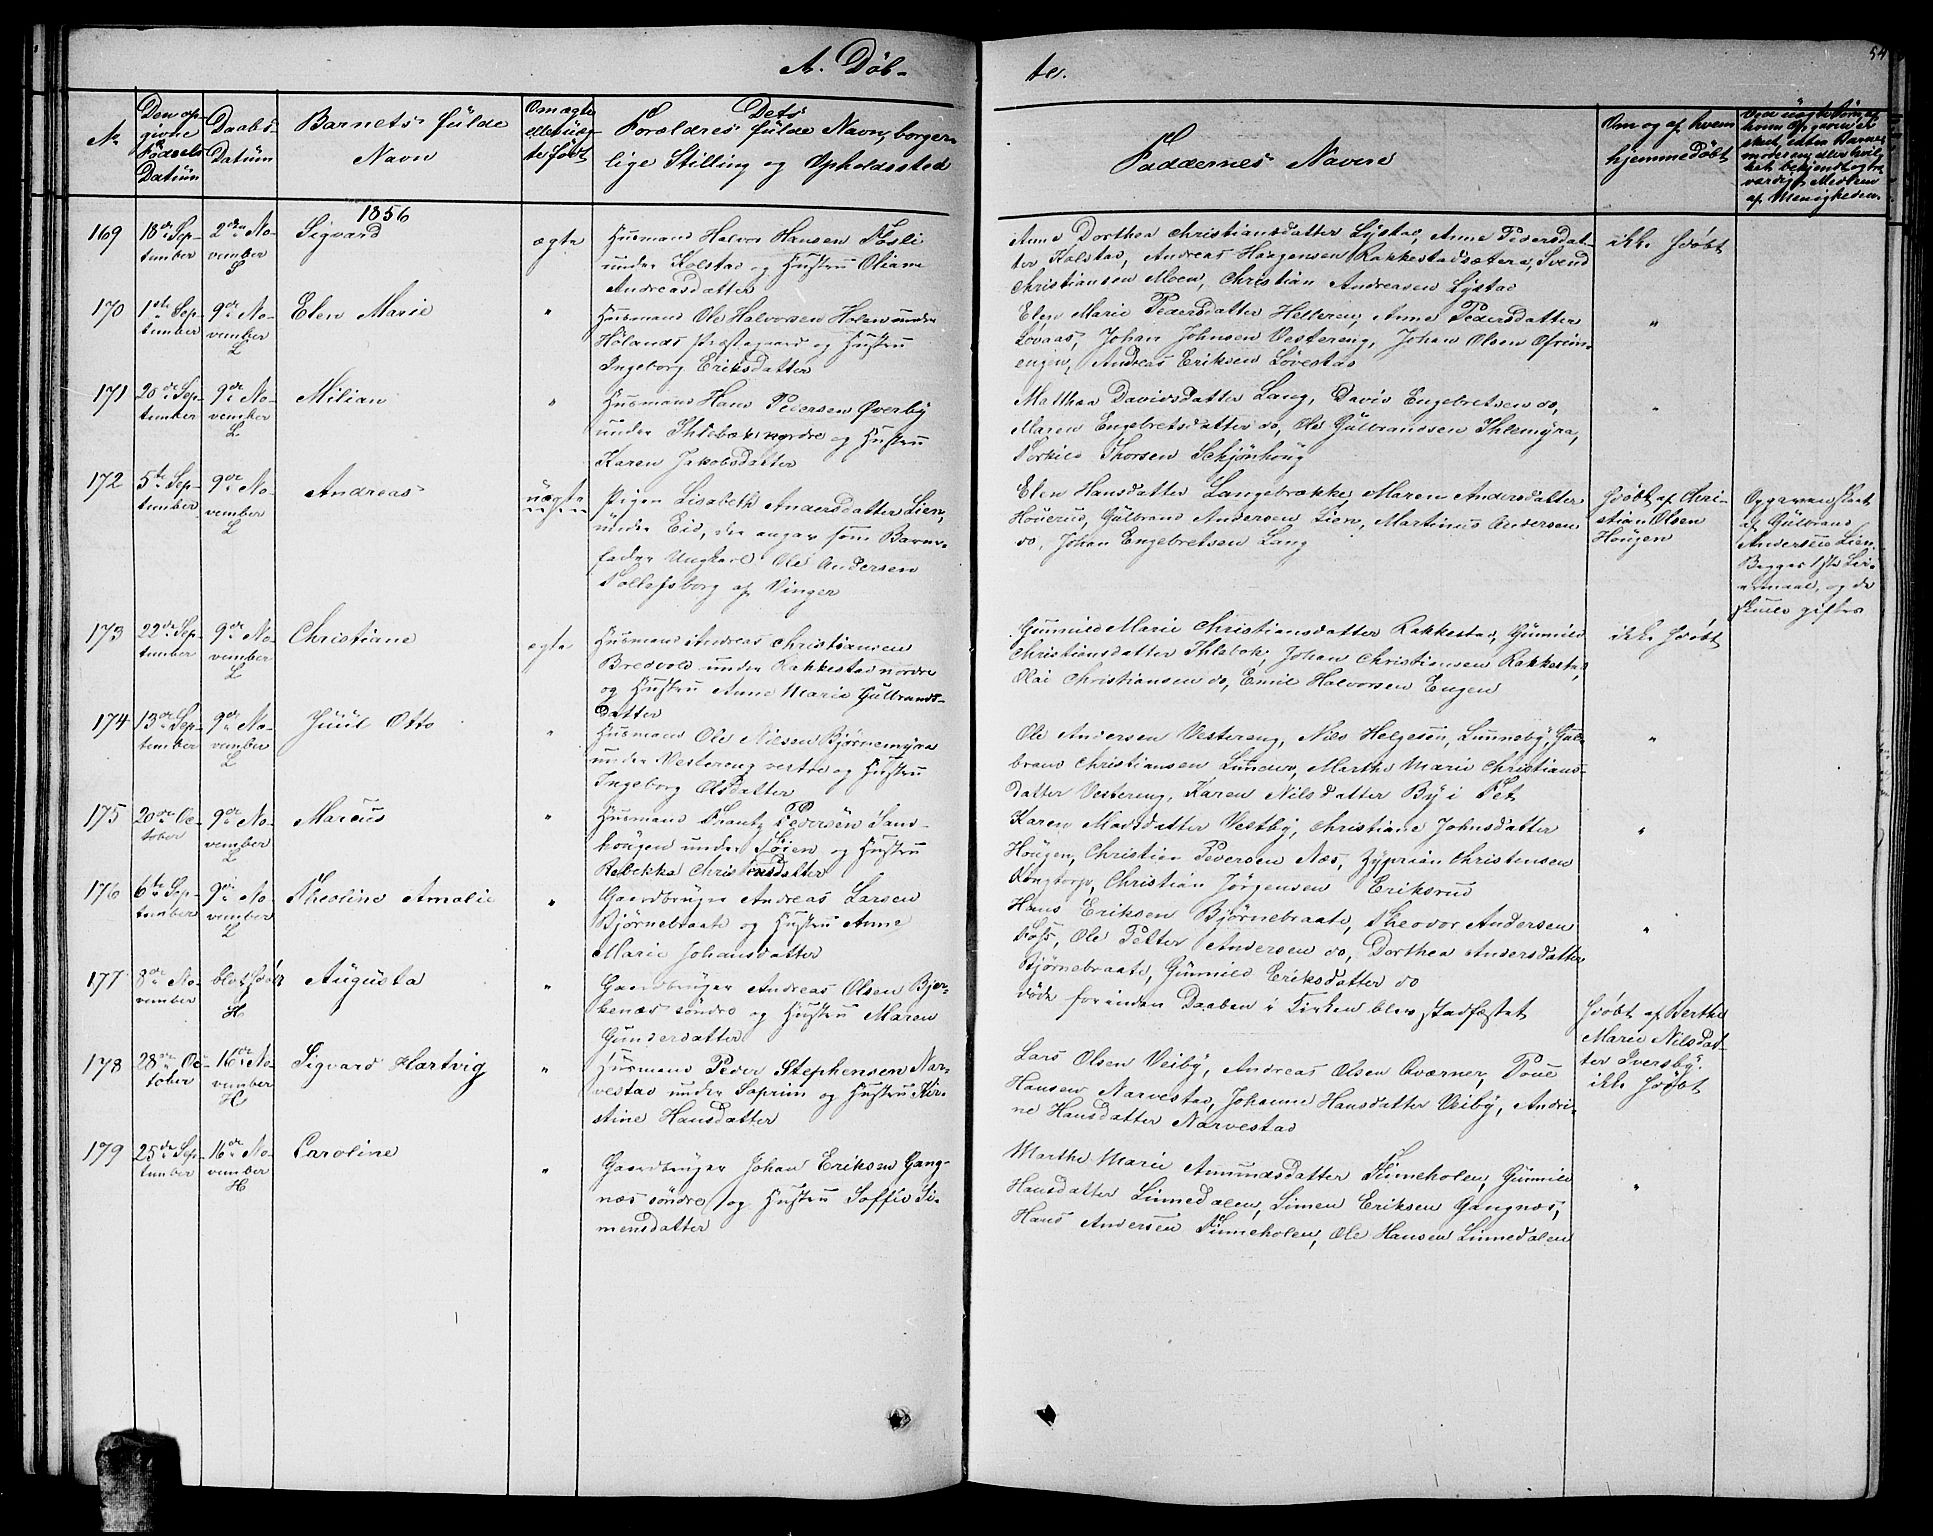 A. Döb-
te.
54
No
Den op-
givne
Födsels
Datüm
Daabs-
Datüm
Barnets fülde
Navn
Om ægte
eller üæg-
te født
Dets
Forældres fülde Navn, borger-
lige Stilling og Opholdssted
Faddernes Navne
Om og af hvem
hjemmedöbt
1856
169 18de Sep- 2den No- Sigvard ægte Husmand Halvor Hansen Fosli
tember vember under Kolstad og Hustru Oliane
L Andreasdatter
Anne Dorthea Christiansdatter Lystad, Anne Pedersdat-
ter Kolstad, Andreas Haagensen Rakkestadsætera, Svend
Christiansen Moen, Christian Andreasen Lystad
ikke hdöbt
170 1ste Sep- 9de No- Elen Marie " Husmand Ole Halvorsen Holen under
tember vember Hölands Præstegaard og Hustru
L Ingeborg Eriksdatter
Elen Marie Pedersdatter Helgren, Anne Pedersdatter
Lövaas, Johan Johnsen Vestereng, Johan Olsen
engen, Andreas Eriksen Lövestad
"
171 20de Sep- 9de No- Milian " Husmand Hans Pedersen Øverby
tember vember under Ihlebæk nordre og Hustru
L Karen Jakobsdatter
Matthea Davidsdatter Lang, David Engebretsen do,
Maren Engebretsdatter do, Ole Gülbrandsen Ihlemyra,
Torkild Thorsen Schjönhoug
"
172 5te Sep- 9de No- Andreas üægte Pigen Lisabeth Andersdatter Lien,
tember vember under Eid, der angav som Barne-
L fader Ungkarl Ole Andersen
Tollefsborg af Vinger
Elen Hansdatter Langebrække, Maren Andersdatter
Houerud, Gülbrand Andersen Lien, Martinus Andersen
do, Johan Engebretsen Lang
hdöbt af Chri-
stian Olsen
Hougen
Opgaven skeet
af Gülbrand
Andersen Lien.
Begges 1ste Lei-
ermaal, og de
skulle giftes
173 22de Sep- 9de No- Christiane ægte Husmand Andreas Christiansen
tember vember Bredvold under Rakkestad nordre
L og Hustru Anne Marie Gülbrands-
datter
Günnild Marie Christiansdatter Rakkestad, Günnild
Christiansdatter Ihlebek, Johan Christiansen Rakkestad,
Olai Christiansen do, Emil Halvorsen Engen
ikke hdöbt
174 13de Sep- 9de No- Jüül Otto " Husmand Ole Nilssen Bjørnemyra
tember vember under Vestereng vestre og Hustru
L Ingeborg Olsdatter
Ole Andersen Vestereng, Nils Helgesen, Lunneby, Gül-
brand Christiansen Lunder, Marthe Marie Christians-
datter Vestereng, Karen Nilsdatter By i Fet
"
175 20de Oc- 9de No- Marcus " Husmand Frantz Pedersen Sand-
tober vember hougen under Töien og Hustru
L Rebekka Christensdatter
Karen Madsdatter Vestby, Christiane Johnsdatter
Hougen, Christian Pedersen Næs, Zyprian Christensen
Kongtorp, Christian Jörgensen Eriksrud
"
176 6te Sep- 9de No- Theoline Amalie " Gaardbruger Andreas Larsen
tember vember Bjørnebraate og Hustru Anne
L Marie Johansdatter
Hans Eriksen Bjørnebraate, Theodor Andersen
Foss, Ole Petter Andersen do, Dorthea Andersdatter
Bjørnebraate, Günnild Eriksdatter do
"
177 8de No- blot hdöbt Augusta " Gaardbruger Andreas Olsen Bjer-
vember H kenæs söndre og Hustru Maren
Gundersdatter
döde forinden Daaben i Kirken blev stadfæstet
hdöbt af Berthe
Marie Nilsdat-
ter Iversby.
178 28de Oc- 16de No- Sigvard Hartvig " Husmand Peder Stephensen Nar-
tober vember vestad under Soprim og Hustru Kir-
H stine Hansdatter
Lars Olsen Veiby, Andreas Olsen Qværner, Poul
Hansen Narvestad, Johanne Hansdatter Veiby, Andri-
ne Hansdatter Narvestad
ikke hdöbt
179 25de Sep- 16de No- Caroline " Gaardbruger Johan Eriksen Gang-
tember vember næs söndre og Hustru Soffie Si-
H mensdatter
Marthe Marie Amundsdatter Finneholen, Günnild
Hansdatter Linnedalen, Simen Eriksen Gangnæs,
Hans Andersen Finneholen, Ole Hansen Linnedalen
"